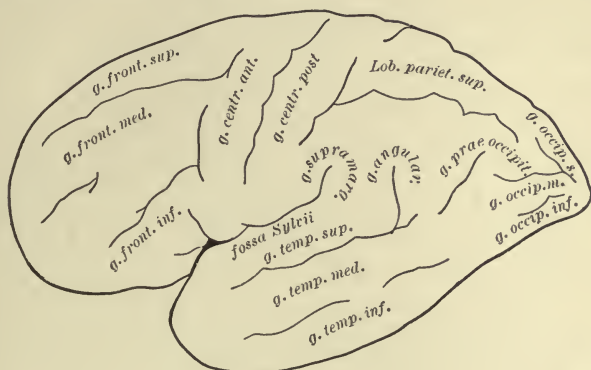 g. front. sup.
g. front. med.
g. front. inf.
g. centr. ant.
g. centr. post
Lob. pariet. sup.
g. supramarg.
g. angular.
g. prae occipit.
g. occip. s.
g. occip. m.
g. occip. inf.
fossa Sylvii
g. temp. sup.
g. temp. med.
g. temp. inf.